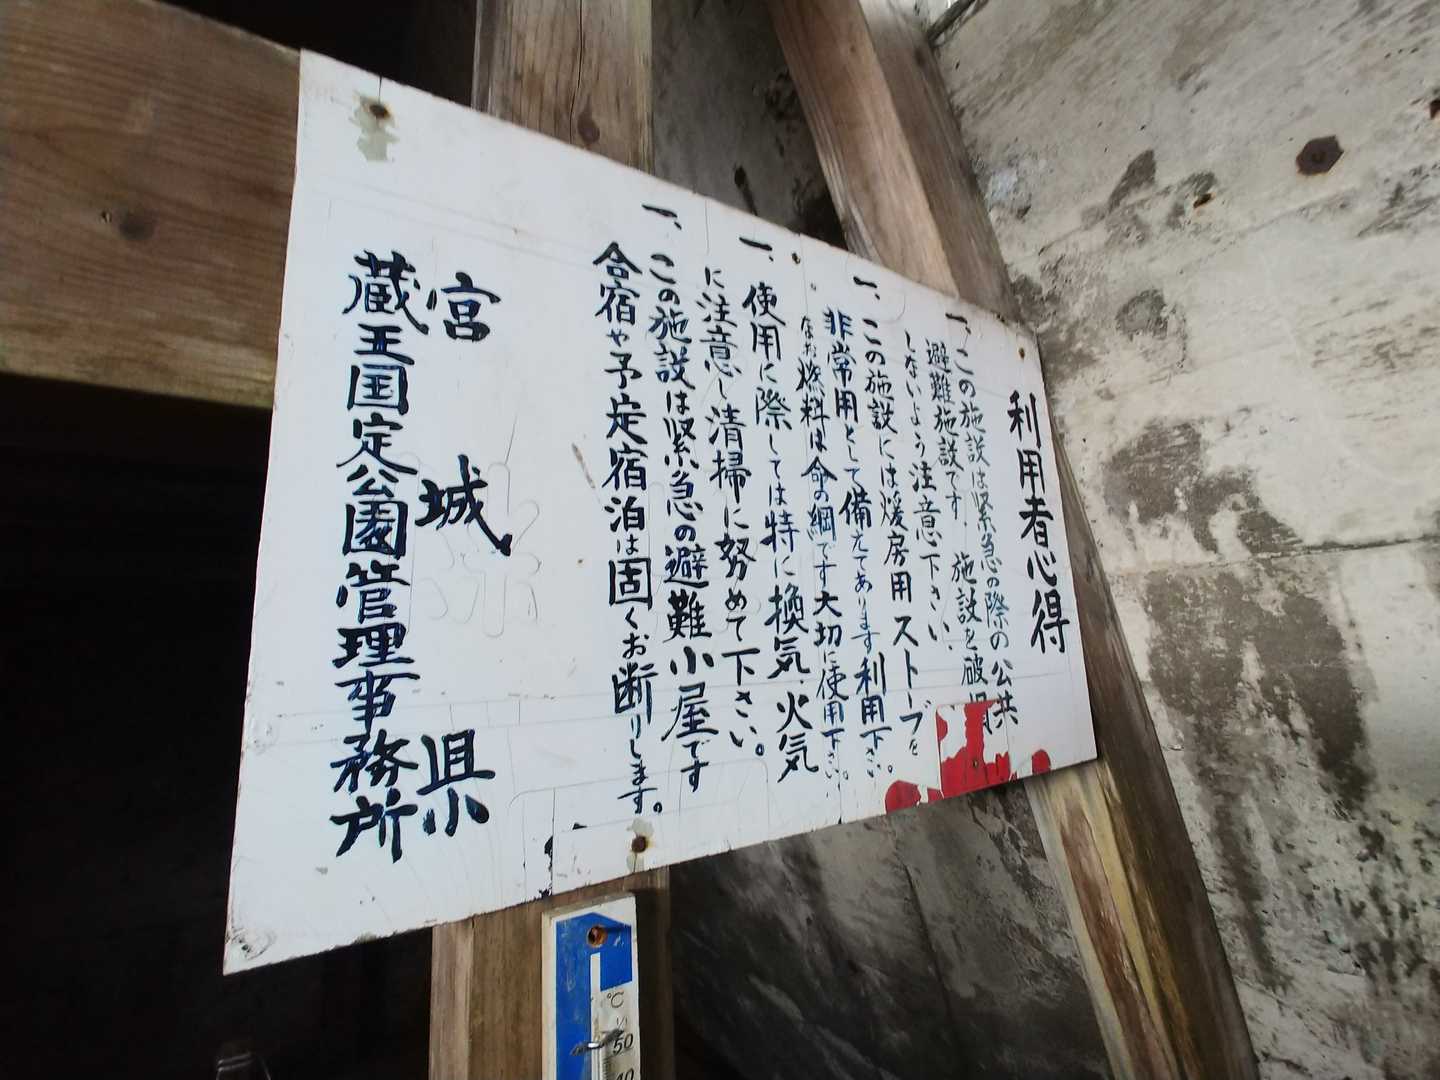 利用者心得
一、この施設は緊急の際の公共
避難施設です。施設を破損
しないよう注意下さい、
一、この施設には煖房用ストーブを
非常用として備えてあります利用下さい。
なお燃料は命の綱です大切に使用下さい。
一、使用に際しては特に換気、火気
に注意し清掃に努めて下さい。
一、この施設は緊急の避難小屋です
合宿や予定宿泊は固くお断りします。
宮城県
蔵王国定公園管理事務所
℃
50
40